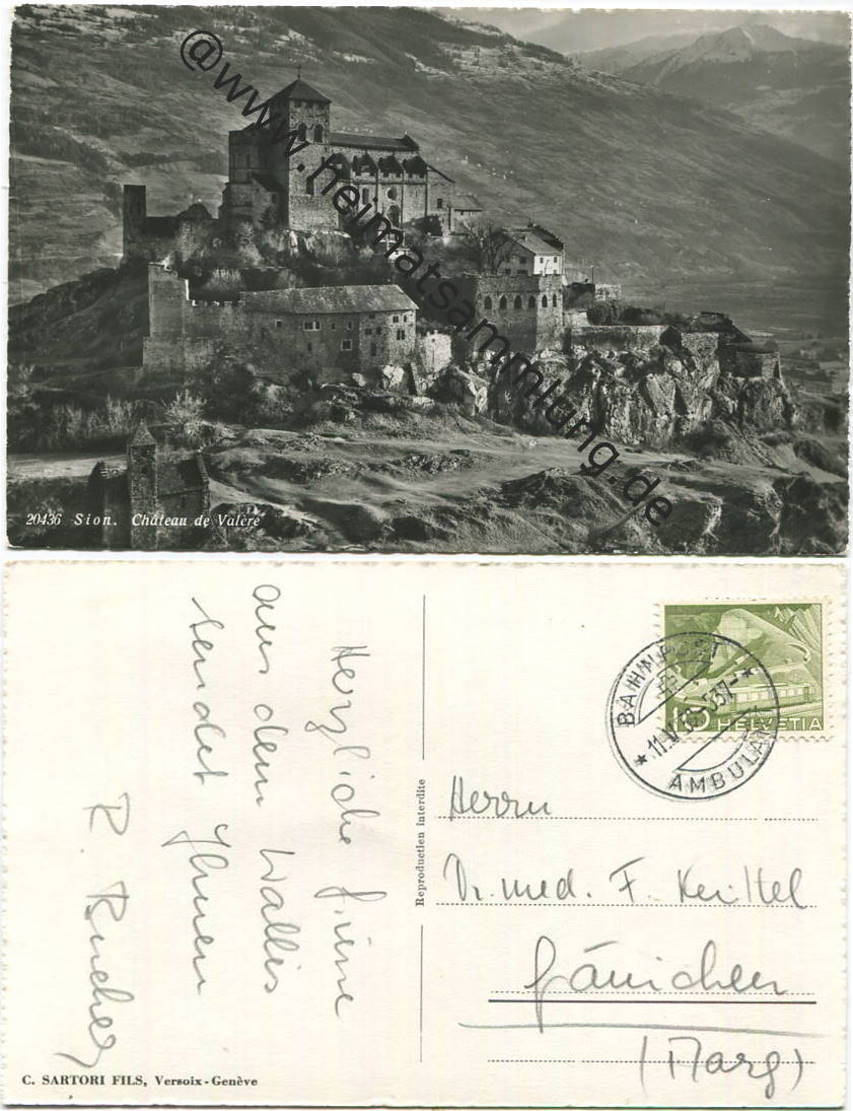 @www.heimatsammlung.de
20436 Sion. Château de Valère
Herzliche Grüsse
aus dem Wallis
sendet Ihnen
R. Bucher
Reproduction interdite
BAHNPOST
*11.V.
53
AMBULANT
HELVETIA
Herrn
Dr. med. F.
Gränichen
(Aarg)
C. SARTORI FILS, Versoix-Genève